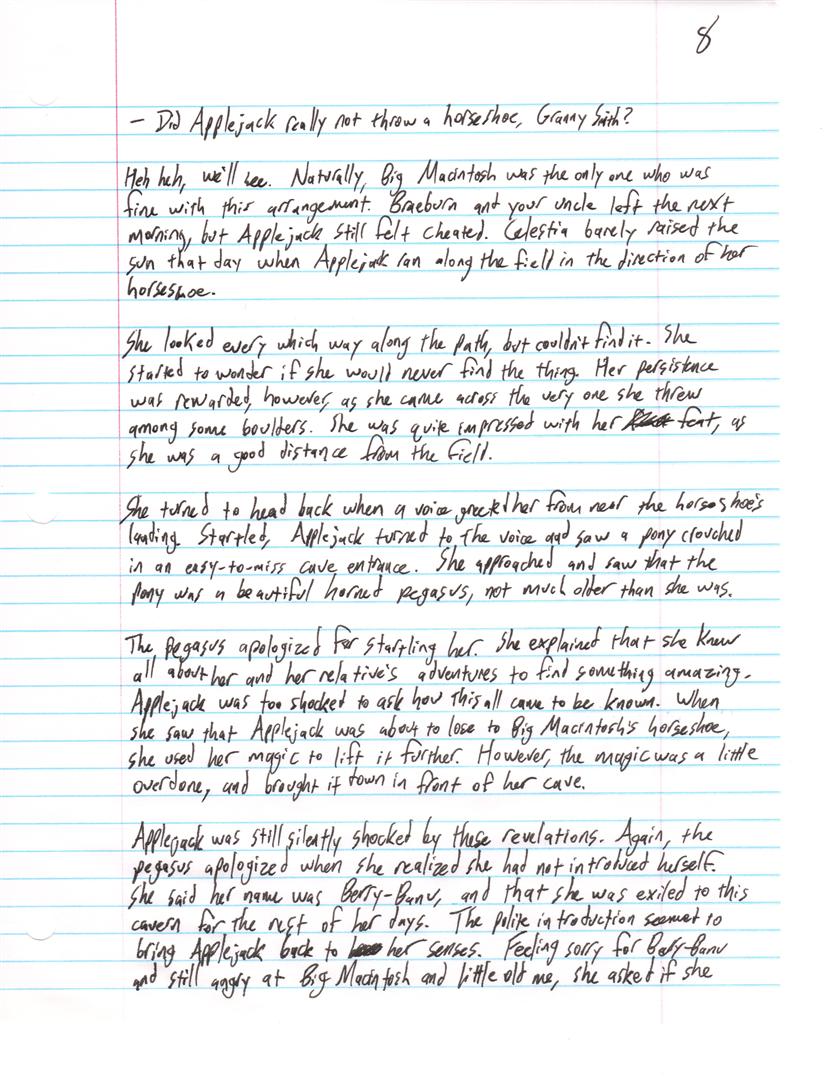 8
– Did Applejack really not throw a horseshoe, Granny Smith?
Heh heh, we'll see. Naturally, Big Macintosh was the only one who was
fine with this arrangement. Braeburn and your uncle left the next
morning, but Applejack still felt cheated. Celestia barely raised the
sun that day when Applejack ran along the field in the direction of her
horseshoe.
She looked every which way along the path, but couldn't find it. She
started to wonder if she would never find the thing. Her persistence
was rewarded, however, as she came across the very one she threw
among some boulders. She was quite impressed with her feat, as
she was a good distance from the field.
She turned to head back when a voice greeted her from near the horseshoe's
landing. Startled, Applejack turned to the voice and saw a pony crouched
in an easy-to-miss cave entrance. She approached and saw that the
pony was a beautiful horned pegasus, not much older than she was.
The pegasus apologized for startling her. She explained that she knew
all about her and her relative's adventures to find something amazing.
Applejack was too shocked to ask how this all came to be known. When
she saw that Applejack was about to lose to Big Macintosh's horseshoe,
she used her magic to lift it further. However, the magic was a little
overdone, and brought it down in front of her cave.
Applejack was still silently shocked by these revelations. Again, the
pegasus apologized when she realized she had not introduced herself.
She said her name was Berry-Banu, and that she was exiled to this
cavern for the rest of her days. The polite introduction seemed to
bring Applejack back to her senses. Feeling sorry for Berry-Banu
and still angry at Big Macintosh and little old me, she asked if she